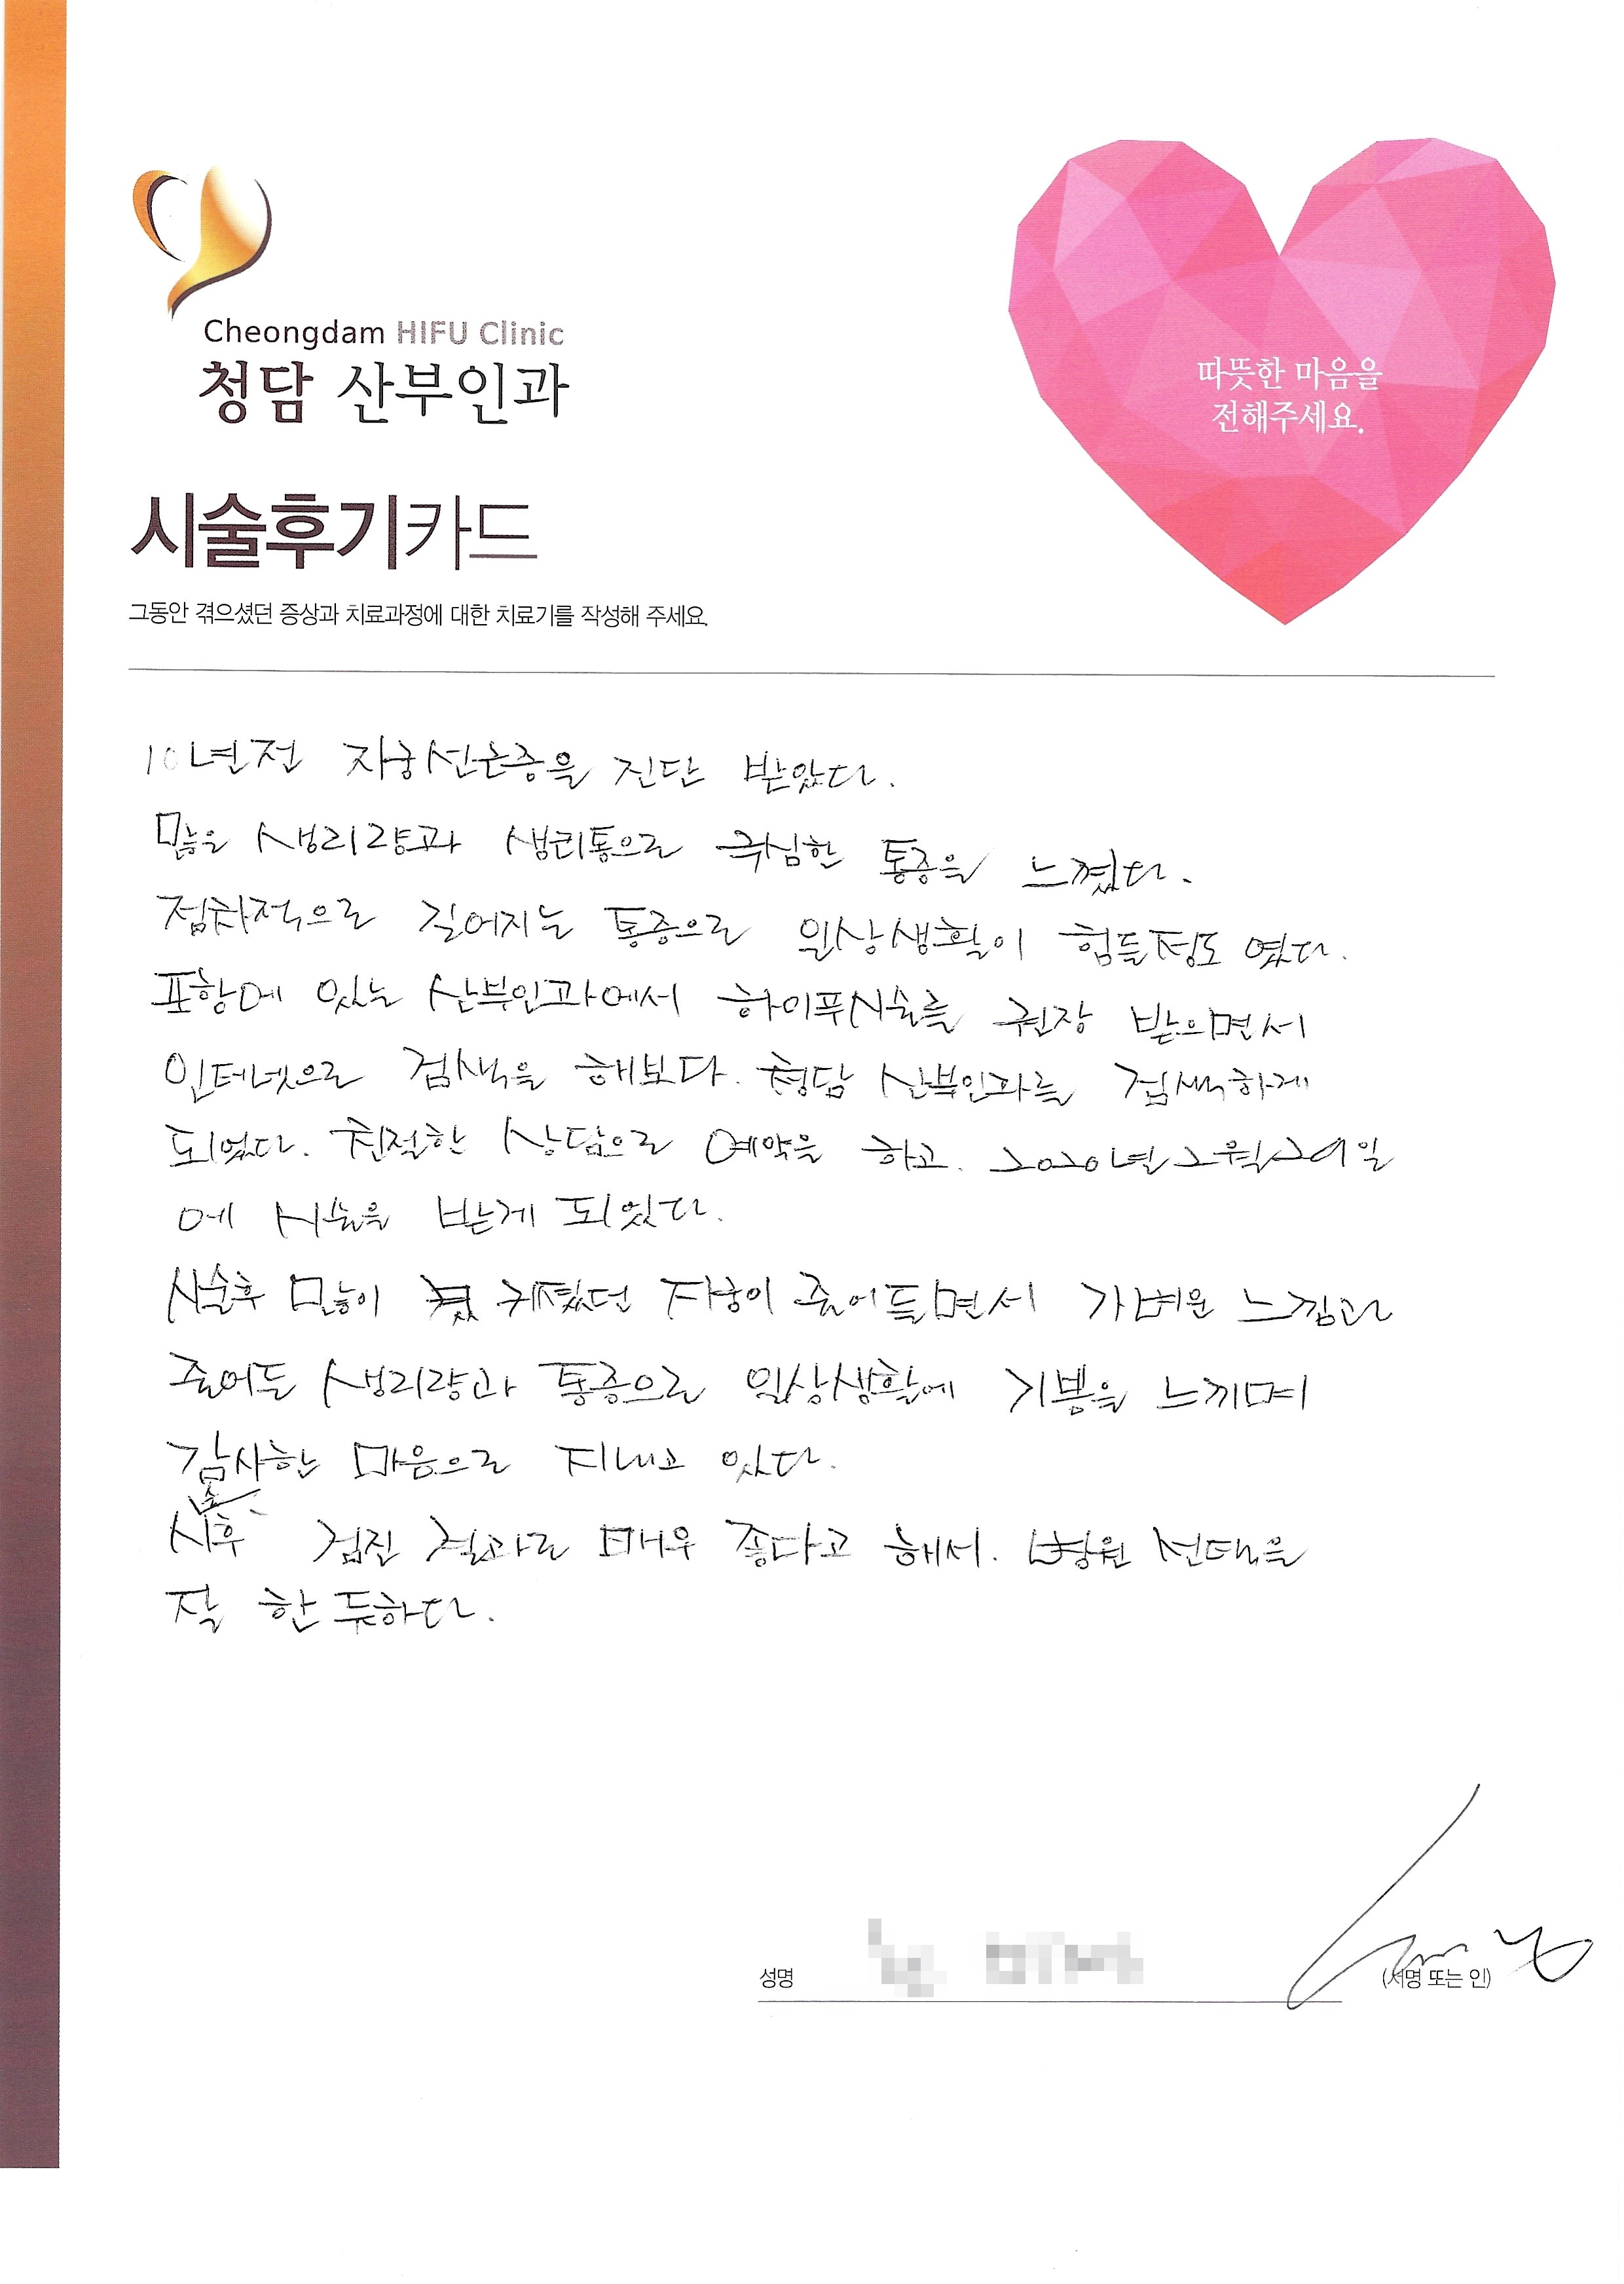 Cheongdam HIFU Clinic
청담 산부인과
따뜻한 마음을
전해주세요.
시술후기카드
그동안 겪으셨던 증상과 치료과정에 대한 치료기를 작성해 주세요.
10년전 자궁선근증을 진단 받았다.
많은 생리량과 생리통으로 극심한 통증을 느꼈다.
점차적으로 길어지는 통증으로 일상생활이 힘들정도 였다.
포항에 있는 산부인과에서 하이푸시술을 권장 받으면서
인터넷으로 검색을 해보다. 청담 산부인과를 검색하게
되었다. 친절한 상담으로 예약을 하고. 2020년 2월 29일
에 시술을 받게 되었다.
시술후 많이 커졌던 자궁이 줄어들면서 가벼운 느낌과
줄어든 생리량과 통증으로 일상생활에 기쁨을 느끼며
감사한 마음으로 지내고 있다.
시술후 검진 결과도 매우 좋다고 해서. 병원 선택을
잘 한 듯하다.
성명
(서명 또는 인)